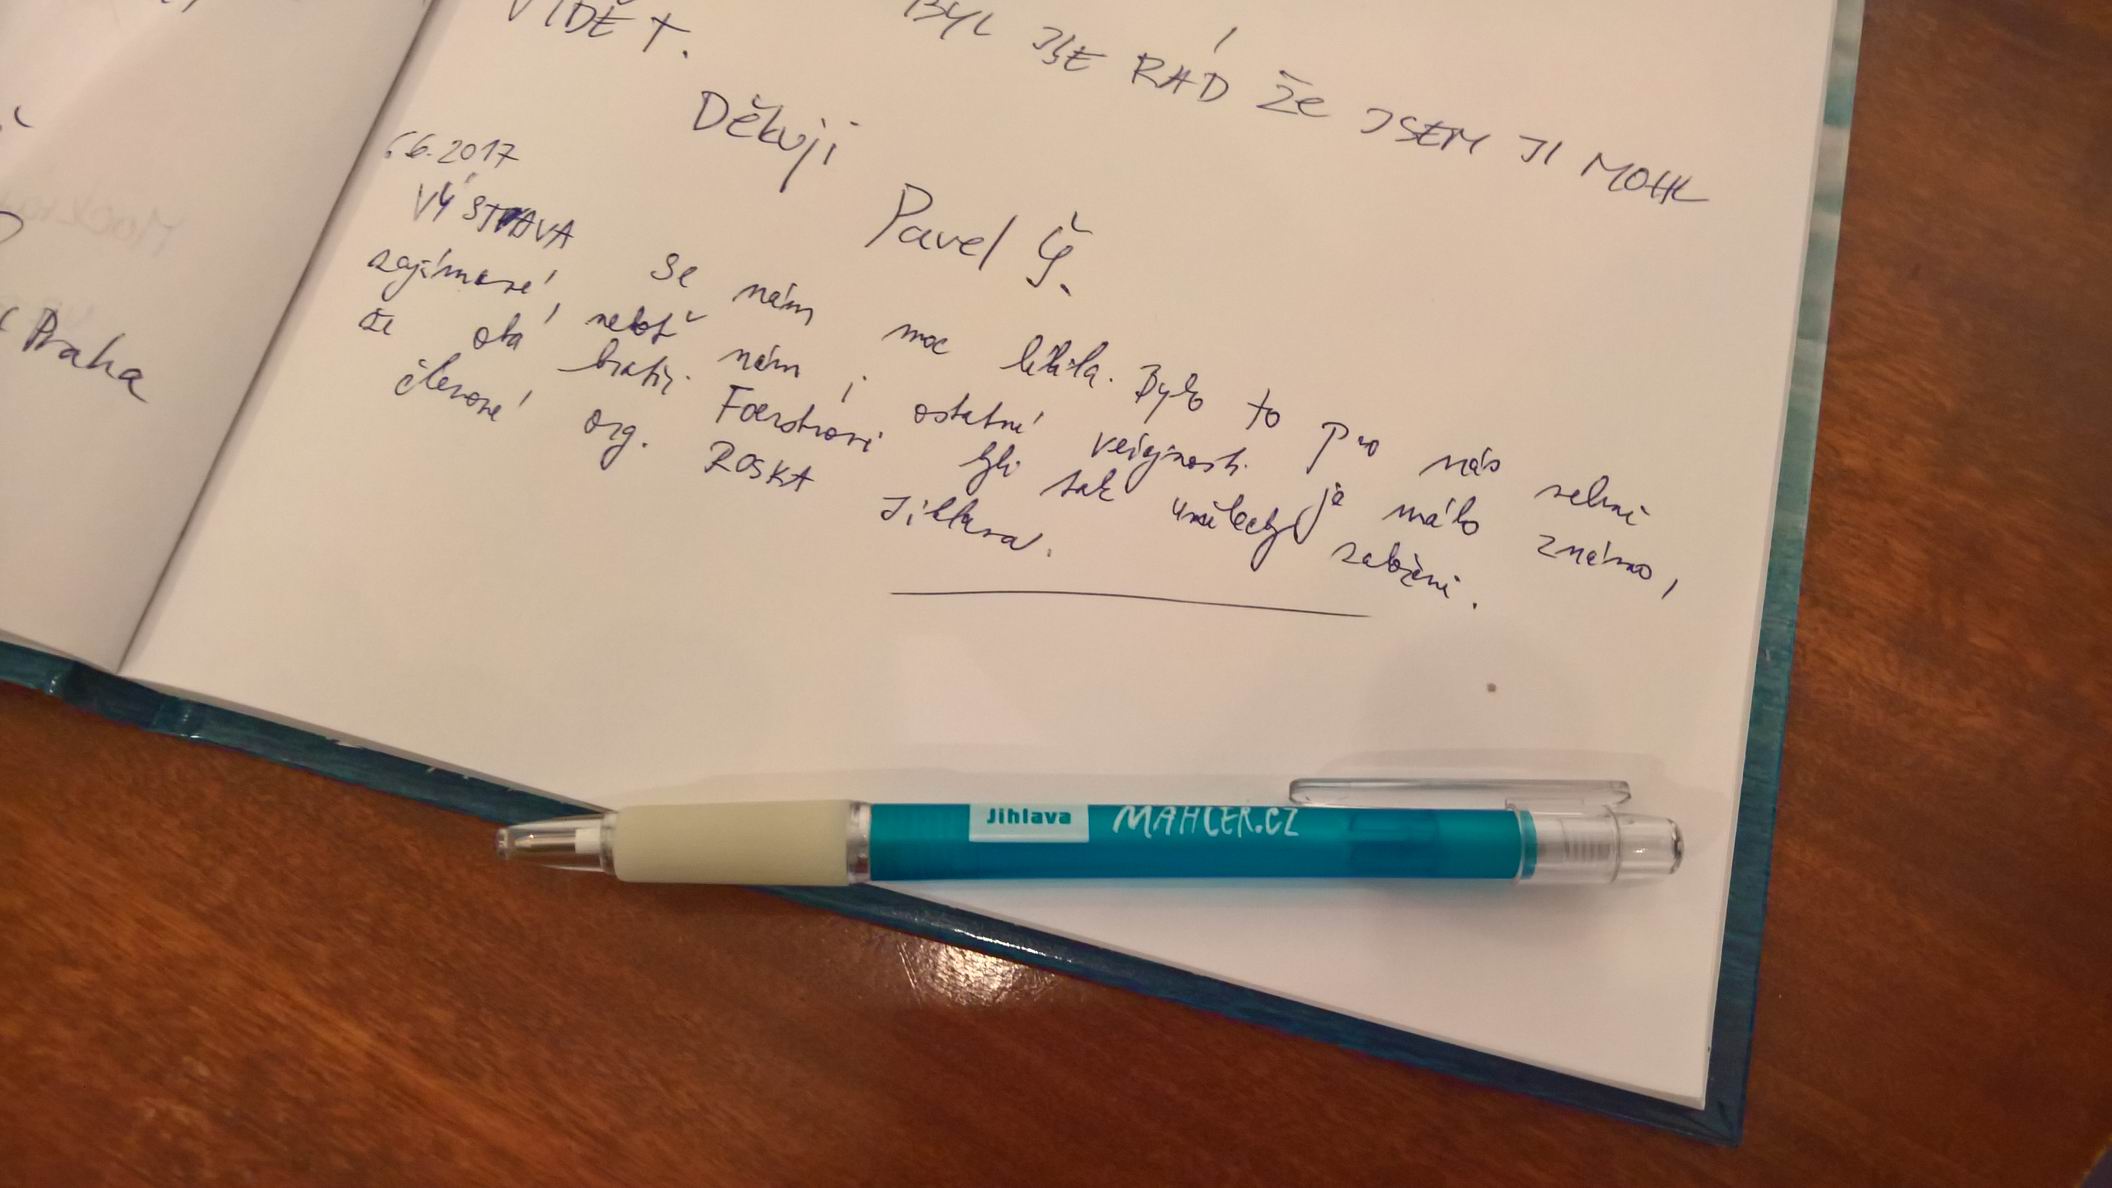 BYL JSE RÁD ŽE JSEM JI MOHL
VIDĚT.
Děkuji
Pavel Č.
6.6.2017
VÝSTAVA se nám moc líbila. Bylo to pro nás velmi
zajímavé, neboť nám i ostatní veřejnosti je málo známo,
že oba bratři Foerstrovi byli tak umělecky založeni.
členové org. ROSKA Jihlava.
Praha
Jihlava MAHLER.CZ